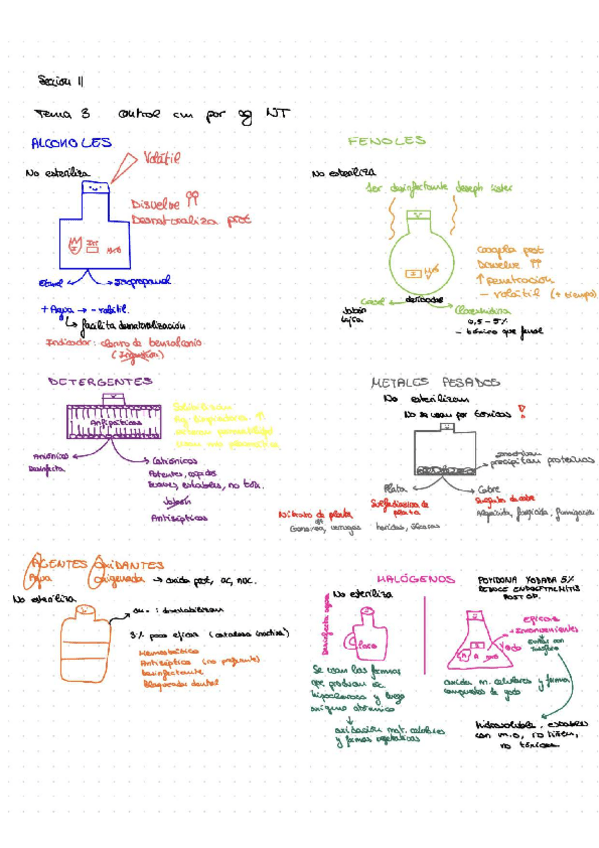 Sección II
Tema 3 control cm por ag NT
ALCOHOLES
No esteriliza
Volátil
Disuelve
Desnaturaliza prot
Etanol
Isopropanol
+ Agua → - volátil.
facilita desnaturalización
Indicador: cloruro de benzalconio
FENOLES
No esteriliza
1er desinfectante Joseph Lister
Coagula prot
Disuelve
↑ penetración
- volátil (+ tiempo)
derivados
Cresol
Jabón
Clorhexidina
0,5-5%
- tóxico que fenol
DETERGENTES
Anfipáticos
Aniónicos
Desinfecta
Catiónicos
Potentes, rápidos
Suaves, estables, no tóx.
Jabón
Antisépticos
METALES PESADOS
No esterilizan
No se usan por tóxicos
precipitan proteínas
Plata
Cobre
Nitrato de plata
Sulfadiazina de plata
Sulfato de cobre
Gonorrea, verrugas
heridas, úlceras
Alguicida, fungicida, fumigación
AGENTES OXIDANTES
Agua oxigenada → oxida prot, ac, nuc.
No esteriliza
3% poco eficaz (catalasa inactiva)
Hemostático
Antiséptico (no profundo)
Desinfectante
Blanqueador dental
HALÓGENOS
No esteriliza
Desinfecta agua
Cloro
Se usan las formas
que producen ác
hipocloroso y luego
oxígeno atómico
oxidación mat. celulares
y formas vegetativas
POVIDONA YODADA 5%
REDUCE ENDOFTALMITIS
POST OP.
Yodo
eficaz
+ Inconvenientes
oxidan m. celulares y forma
compuestos de yodo
Hidrosoluble, estables
con m.o, no tiñen,
no tóxicos